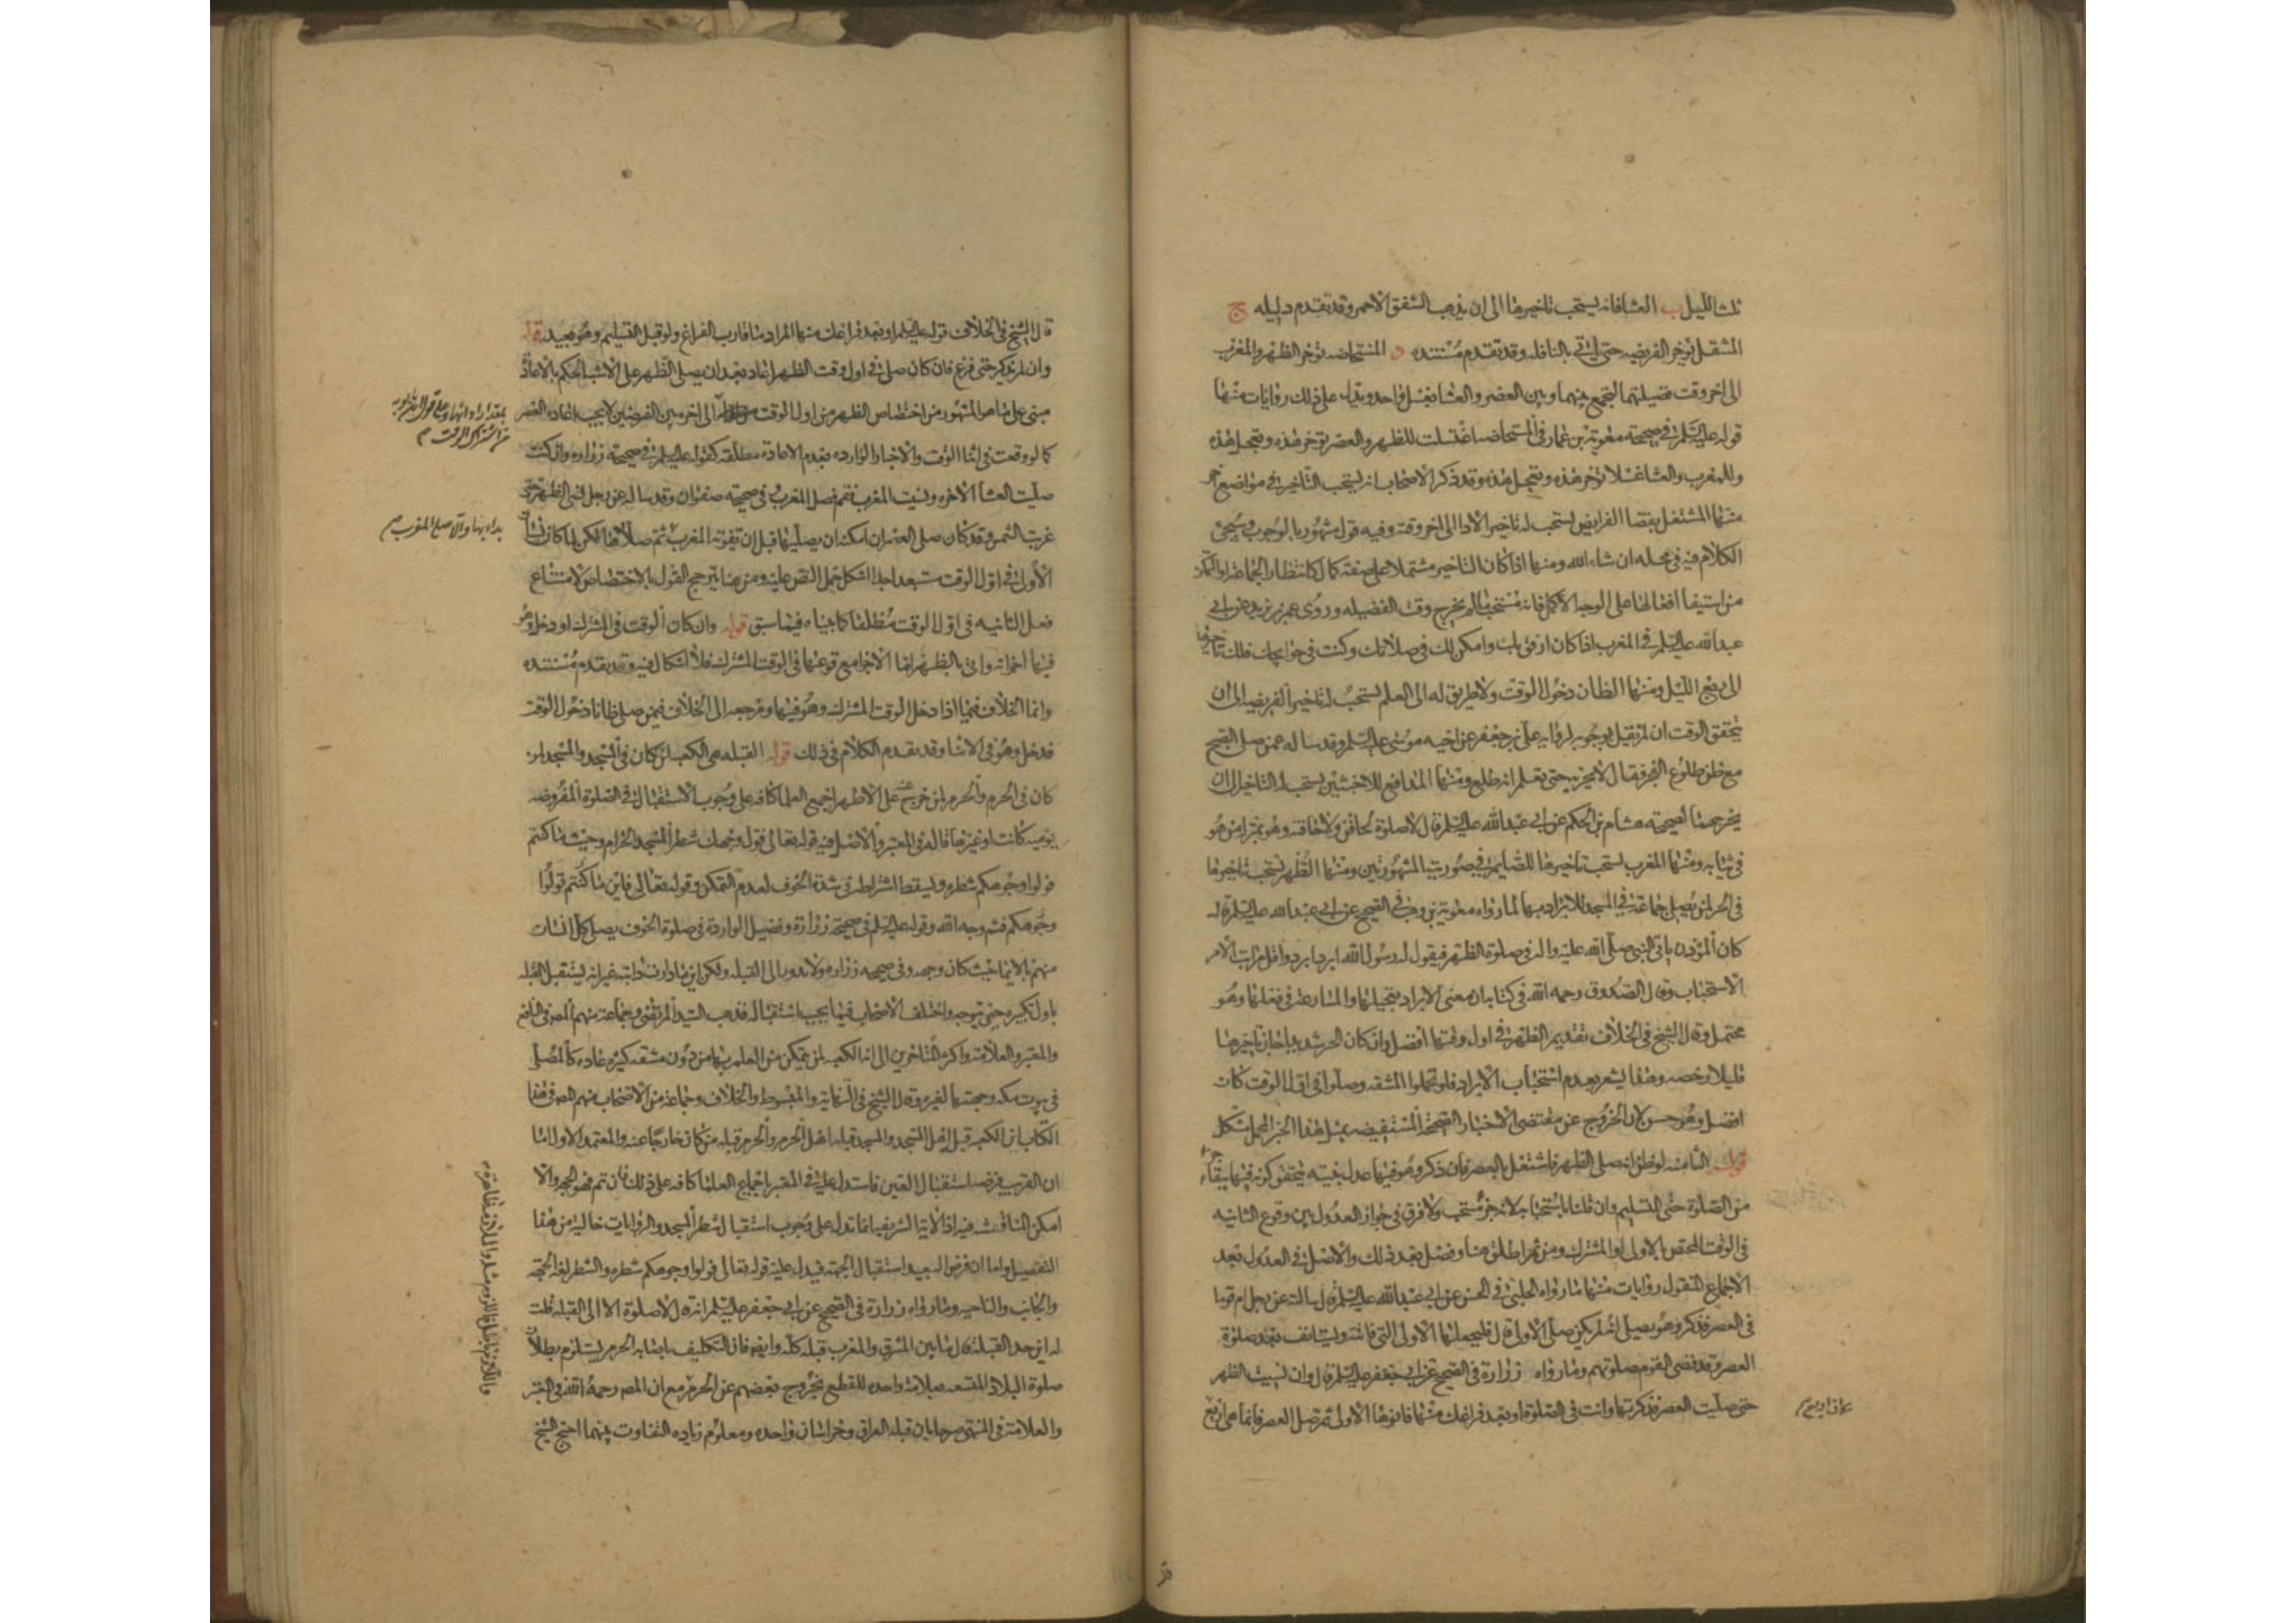 ثلث الليل ب العشا فانه يستحب تاخيرها الى ان يذهب الشفق الاحمر وقد تقدم دليله ج
المتنفل يوخر الفريضه حتى ياتي بالنافله وقد تقدم مستنده د المستحاضه توخر الظهر والمغرب
الى اخر وقت فضيلتهما لتجمع بينهما وبين العصر والعشا بغسل واحد ويدل على ذلك روايات منها
قوله عليه السلم في صحيحة معوية بن عمار في المستحاضه اغتسلت للظهر والعصر توخر هذه وتعجل هذه
وللمغرب والعشا غسلا توخر هذه وتعجل هذه وقد ذكر الاصحاب انه يستحب التاخير في مواضع اخر
منها المشتغل بقضا الفرايض يستحب له تاخير الادا الى اخر وقته وفيه قول مشهور بالوجوب وسيجئ
الكلام فيه في محله ان شاء الله ومنها اذا كان التاخير مشتملا على صفة كمال كانتظار الجماعة او التمكن
من استيفا افعالها على الوجه الاكمل فانه مستحب ما لم يخرج وقت الفضيله وروى عمر بن يزيد عن ابي
عبد الله عليه السلم في المغرب اذا كان ارفق بك وامكن لك في صلاتك وكنت في حوايجك فلك تاخيرها
الى ربع الليل ومنها الظان دخول الوقت ولا طريق له الى العلم يستحب له تاخير الفريضه الى ان
يتحقق الوقت ان لم نقل بوجوبه لرواية علي بن جعفر عن اخيه موسى عليه السلم وقد ساله عمن صلى الصبح
مع ظن طلوع الفجر فقال لا يجزيه حتى يعلم انه طلع ومنها المدافع للاخبثين يستحب له التاخير الى ان
يخرجهما لصحيحة هشام بن الحكم عن ابي عبد الله عليه السلم قال لا صلوة لحاقن ولا حاقنه وهو بمنزلة من هو
في ثيابه ومنها المغرب يستحب تاخيرها للصايم في صورتيه المشهورتين ومنها الظهر يستحب تاخيرها
في الحر لمن يصلي جماعة في المسجد للابراد بها لما رواه معوية بن وهب في الصحيح عن ابي عبد الله عليه السلم قال
كان المؤذن ياتي النبي صلى الله عليه واله في صلوة الظهر فيقول له رسول الله ابرد ابرد واقل مراتب الامر
الاستحباب وقال الصدوق رحمه الله في كتابه ان معنى الابراد تعجيلها والمسارعة في فعلها وهو
محتمل وقال الشيخ في الخلاف تقديم الظهر في اول وقتها افضل وان كان الحر شديدا جاز تاخيرها
قليلا رخصه وهذا يشعر بعدم استحباب الابراد فلو تحملوا المشقه وصلوا في اول الوقت كان
افضل وهو حسن لان الخروج عن مقتضى الاخبار الصحيحة المستفيضه بمثل هذا الخبر المجمل مشكل
قوله الثامنه لو ظن انه صلى الظهر فاشتغل بالعصر فان ذكر وهو فيها عدل بنيته يتحقق كونه فيها ببقاء جزء
من الصلوة حتى التسليم وان قلنا باستحبابه لانه جزء مستحب ولا فرق في جواز العدول بين وقوع الثانيه
في الوقت المختص بالاولى او المشترك ومن ثم اطلق هنا وفصل بعد ذلك والاصل في العدول بعد
الاجماع المنقول روايات منها ما رواه الحلبي في الحسن عن ابي عبد الله عليه السلم قال سالته عن رجل ام قوما
في العصر فذكر وهو يصلي انه لم يكن صلى الاولى قال فليجعلها الاولى التي فاتته ويستانف بعد صلوة
العصر وقد قضى القوم صلوتهم وما رواه زرارة في الصحيح عن ابي جعفر عليه السلم قال وان نسيت الظهر
حتى صليت العصر فذكرتها وانت في الصلوة او بعد فراغك منها فانوها الاولى ثم صل العصر فانما هي اربع
قال الشيخ في الخلاف قوله عليه السلم او بعد فراغك منها المراد ما قارب الفراغ ولو قبل التسليم وهو بعيد قوله
وان لم يذكر حتى فرغ فان كان صلى في اول وقت الظهر اعاد بعد ان يصلي الظهر على الاشبه الحكم بالاعادة
مبني على ما هو المشهور من اختصاص الظهر من اول الوقت بمقدار ادائها وعلى قول ابن بابويه من اشتراك الوقت من اوله الى اخره بين الفرضين لا يجب اعادة العصر
كما لو وقعت في اثنا الوقت والاخبار الوارده بعدم الاعادة مطلقه كقوله عليه السلم في صحيحة زراره وان كنت
صليت العشا الاخره ونسيت المغرب فقم فصل المغرب وفي صحيحة صفوان وقد ساله عن رجل نسي الظهر حتى
غربت الشمس وقد كان صلى العصر ان امكنه ان يصليها قبل ان تفوته المغرب بدا بها والا صلى المغرب ثم صلاها لكن لما كان نسيان
الاولى في اول الوقت مستبعد جدا اشكل حمل النص عليه ومن هنا يترجح القول بالاختصاص لامتناع
فعل الثانيه في اول الوقت مطلقا كما بيناه فيما سبق قوله وان كان الوقت في المشترك او دخل وهو
فيها اجزاته واتى بالظهر اما الاجزا مع وقوعها في الوقت المشترك فلا اشكال فيه وقد تقدم مستنده
وانما الخلاف فيما اذا دخل الوقت المشترك وهو فيها ومرجعه الى الخلاف فيمن صلى ظانا دخول الوقت
فدخل وهو في الاثنا وقد تقدم الكلام في ذلك قوله القبله هي الكعبه لمن كان في المسجد والمسجد لمن
كان في الحرم والحرم لمن خرج عنه على الاظهر اجمع العلما كافه على وجوب الاستقبال في الصلوة المفروضه
يوميه كانت او غيرها قاله في المعتبر والاصل فيه قوله تعالى فول وجهك شطر المسجد الحرام وحيث ما كنتم
فولوا وجوهكم شطره ويسقط اشتراطه في شدة الخوف لعدم التمكن وقوله تعالى فاين ما كنتم تولوا
وجوهكم فثم وجه الله وقوله عليه السلم في صحيحة زرارة وفضيل الواردة في صلوة الخوف يصلي كل انسان
منهم بالايما حيث كان وجهه وفي صحيحه زراره ولا يدور الى القبله ولكن اين ما دارت دابته غير انه يستقبل القبله
باول تكبيره حين يتوجه واختلف الاصحاب فيما يجب استقباله فذهب السيد المرتضى وجماعة منهم المصنف في النافع
والمعتبر والعلامة واكثر المتاخرين الى انه الكعبه لمن يتمكن من العلم بها من دون مشقه كثيره عاده كالمصلي
في بيوت مكه وجهتها لغيره وقال الشيخ في النهاية والمبسوط والخلاف وجماعة من الاصحاب منهم المصه في هذا
الكتاب ان الكعبه قبلة اهل المسجد والمسجد قبلة اهل الحرم والحرم قبلة من كان خارجا عنه والمعتمد الاول اما
ان القريب فرضه استقبال العين فاستدل عليه في المعتبر باجماع العلما كافه على ذلك فان تم فهو الحجه والا
امكن المناقشه فيه اذ الآية الشريفه انما تدل على وجوب استقبال شطر المسجد والروايات خالية من هذا
التفصيل واما ان فرض البعيد استقبال الجهة فيدل عليه قوله تعالى فولوا وجوهكم شطره والشطر لغة الجهة
والجانب والناحيه وما رواه زرارة في الصحيح عن ابي جعفر عليه السلم انه قال لا صلوة الا الى القبله قلت
له اين حد القبله قال ما بين المشرق والمغرب قبله كله وايضه فان التكليف باصابه الحرم يستلزم بطلان
صلوة البلاد المتسعه بعلامة واحده للقطع بخروج بعضهم عن الحرم واللازم باطل فالملزوم مثله والملازمة ظاهرة مع ان المصه رحمة الله في المعتبر
والعلامة في المنتهى صرحا بان قبله العراق وخراسان واحده ومعلوم زياده التفاوت بينهما احتج الشيخ